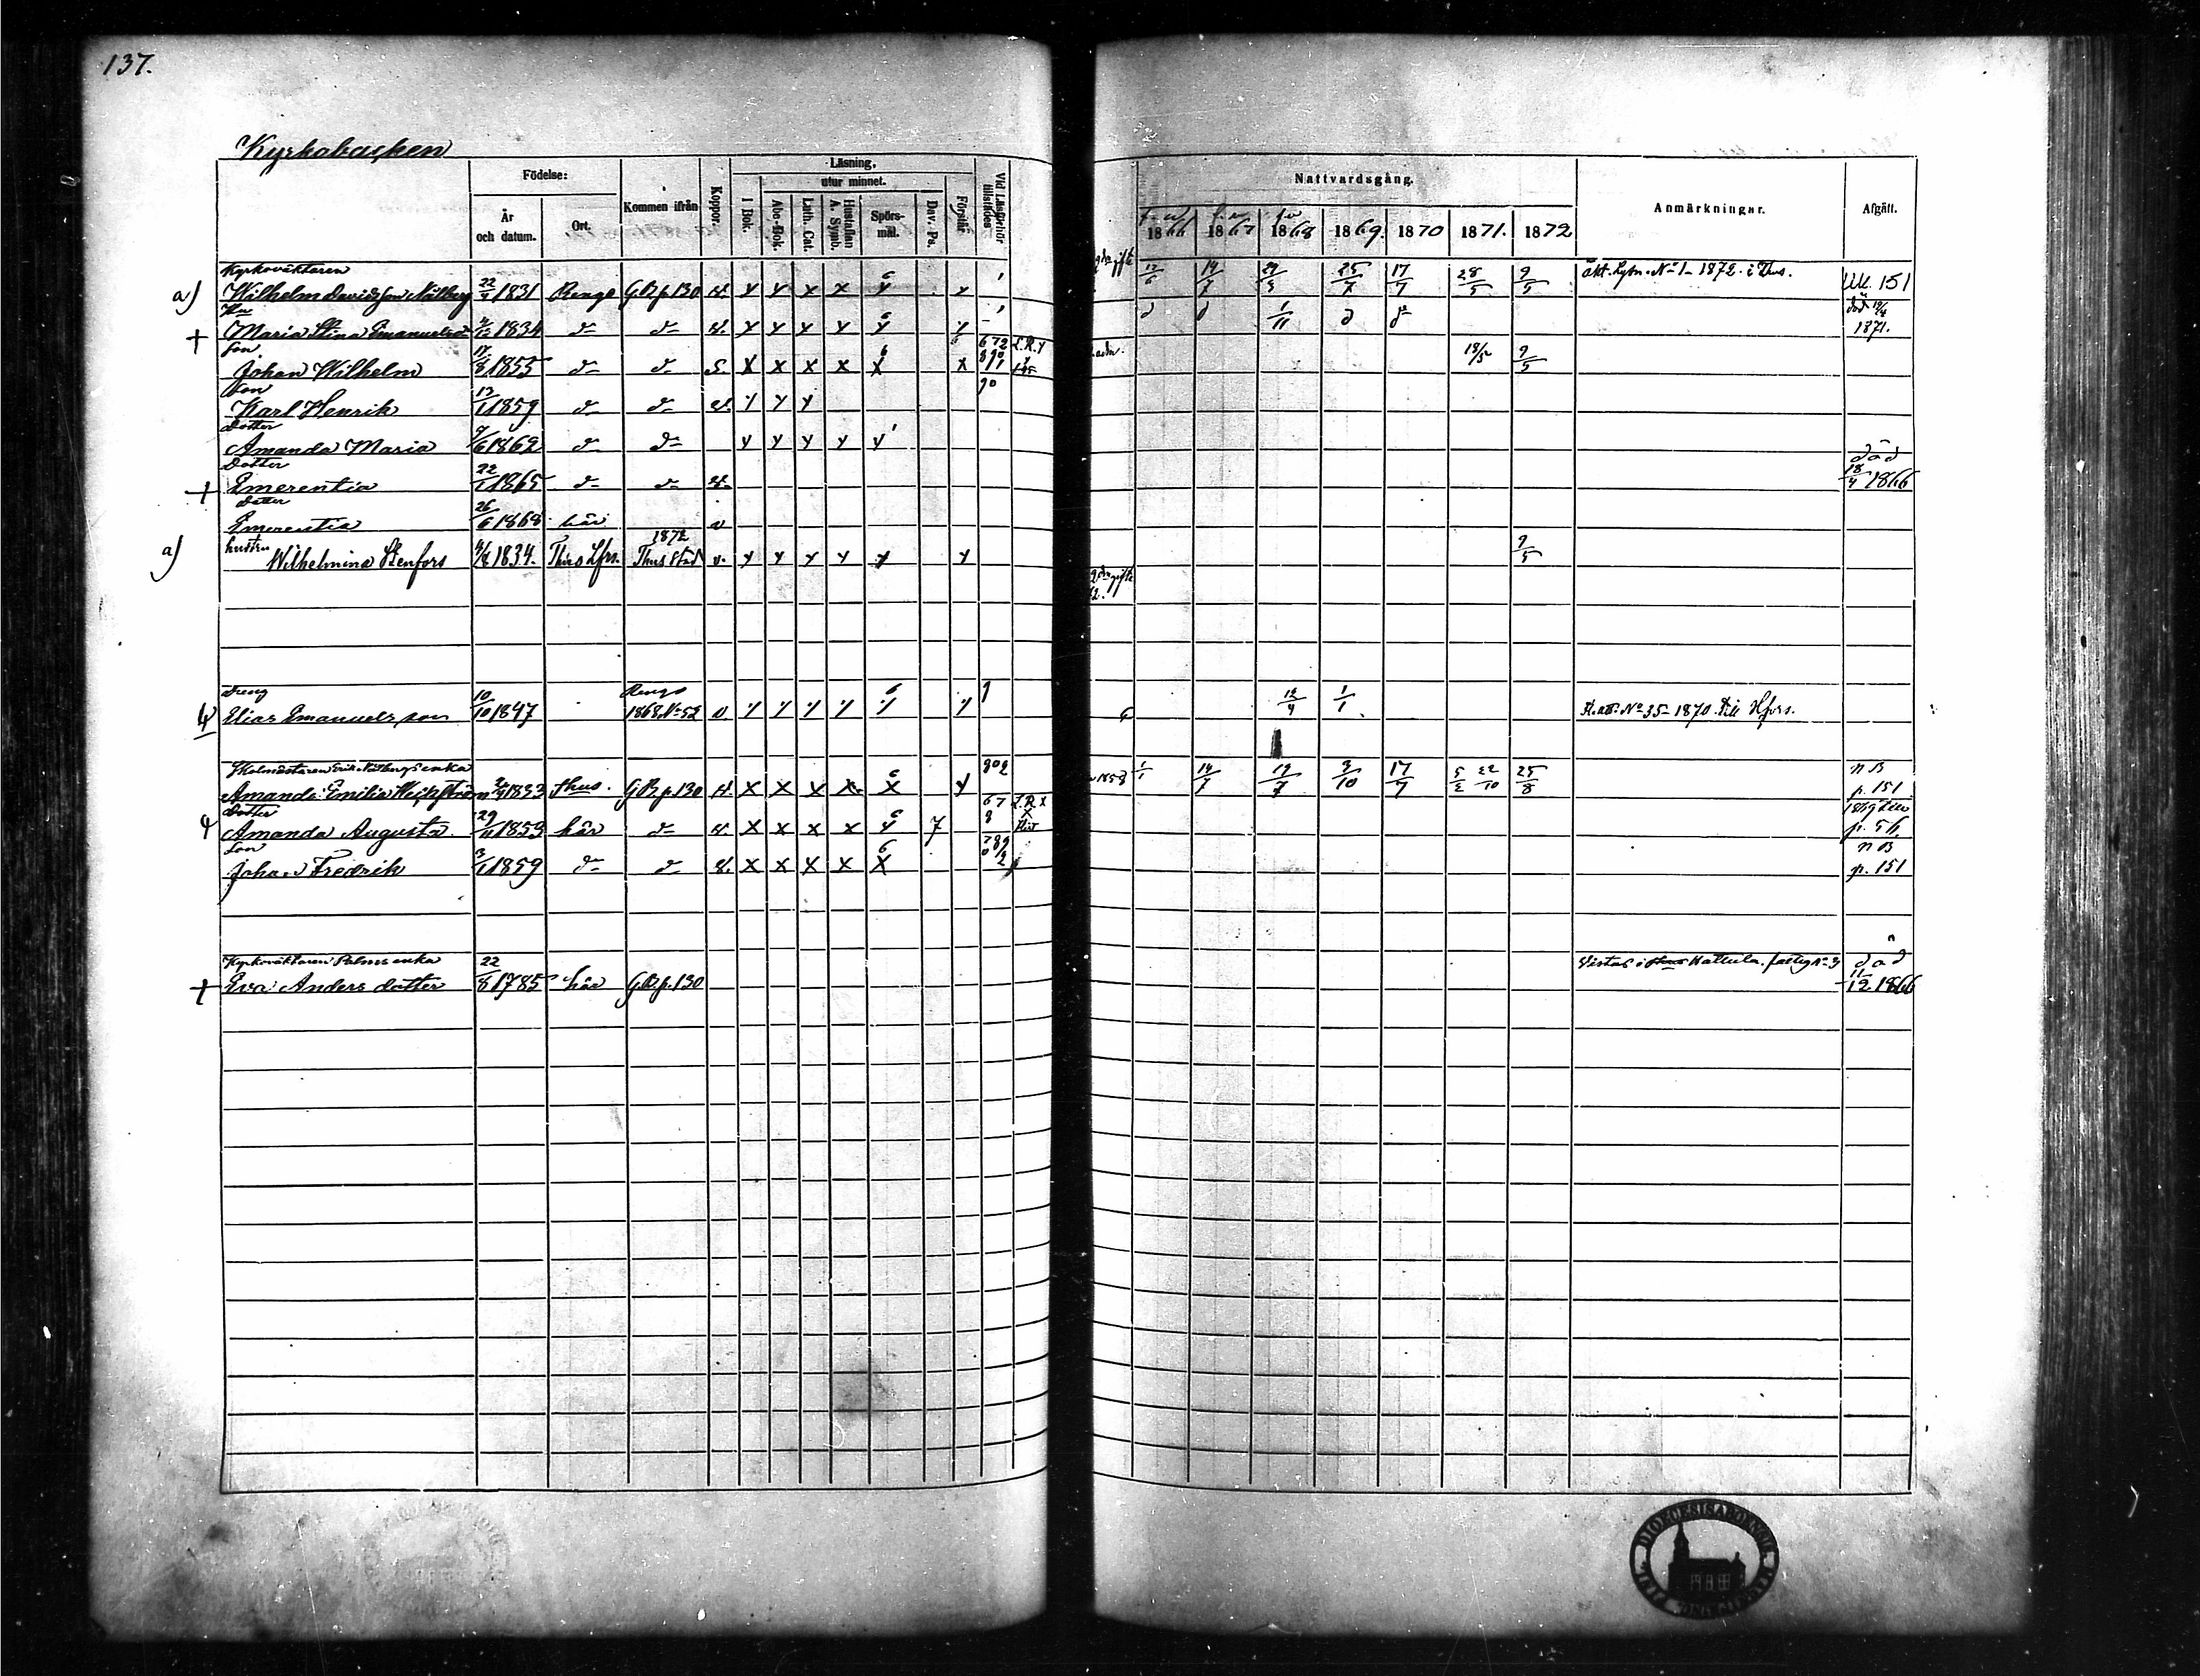 137.
Kyrkobacken
Födelse:
År och datum.
Ort.
Kommen ifrån
Koppor.
Läsning,
utur minnet.
I Bok.
Abc-Bok.
Luth. Cat.
Hustaflan A. Symb.
Spörs-mål.
Dav. Ps.
Förstår
Vid Läsförhör tillstädes
Nattvardsgång.
1866 1867 1868 1869. 1870 1871. 1872
Anmärkningar.
Afgått.
Kyrkoväktaren
a) Wilhelm Davidsson Nätberg 22/9 1831 Rengo G.B.p.130 v. y y x x y 6 y 1 14/7 29/3 25/7 17/7 28/5 9/5 N:o 1 1872. i Thus. 151
Hu
+ Maria Stina Emanuelsd. 1834 d:o d:o v. y y y y y 6 y 1/11 död 19/4 1871.
Son
Johan Wilhelm 17/8 1855 d:o d:o s. x x x x x 6 x 672 890 1 L.R. y 18/5 9/5
Son
Karl Henrik 13/1 1859 d:o d:o v. y y y 90
Dotter
Amanda Maria 9/6 1862 d:o d:o y y y y y 1
Dotter
+ Emerentia 22/1 1865 d:o d:o v. död 18/4 1866
Dotter
Emerentia 26/6 1868 här v
a) hustru Wilhelmina Stenfors 1834. Thus Lfrs. 1872 Thus stad v. y y y y y y 9/5
2dra gifte
Dreng
Elias Emanuelsson 10/10 1847 Rengo 1868 N:o 52 v y y y y y 6 y 9 12/4 1/1 N:o 35 1870 till Hfors.
Skolmästaren Erik Nätbergs enka
Amanda Emilia Weckström 1833 Thus. G.B.p.130 v. x x x x x 6 y 902 1/1 14/7 19/7 3/10 17/7 5/2 22/10 25/8 n B p. 151
Dotter
Amanda Augusta 29/11 1853 här d:o v. x x x x y 6 7 67 8 L.R. x 1869 p. 56.
Son
Johan Fredrik 3/1 1859 d:o d:o v. x x x x x 6 789 0 2 n B p. 151
Kyrkoväktaren Palms enka
+ Eva Andersdotter 22/8 1785 här G.B.p.130 Vistas i Hattula. fattig N:o 3 död 11/12 1866
DIOECESIS ABOENSIS